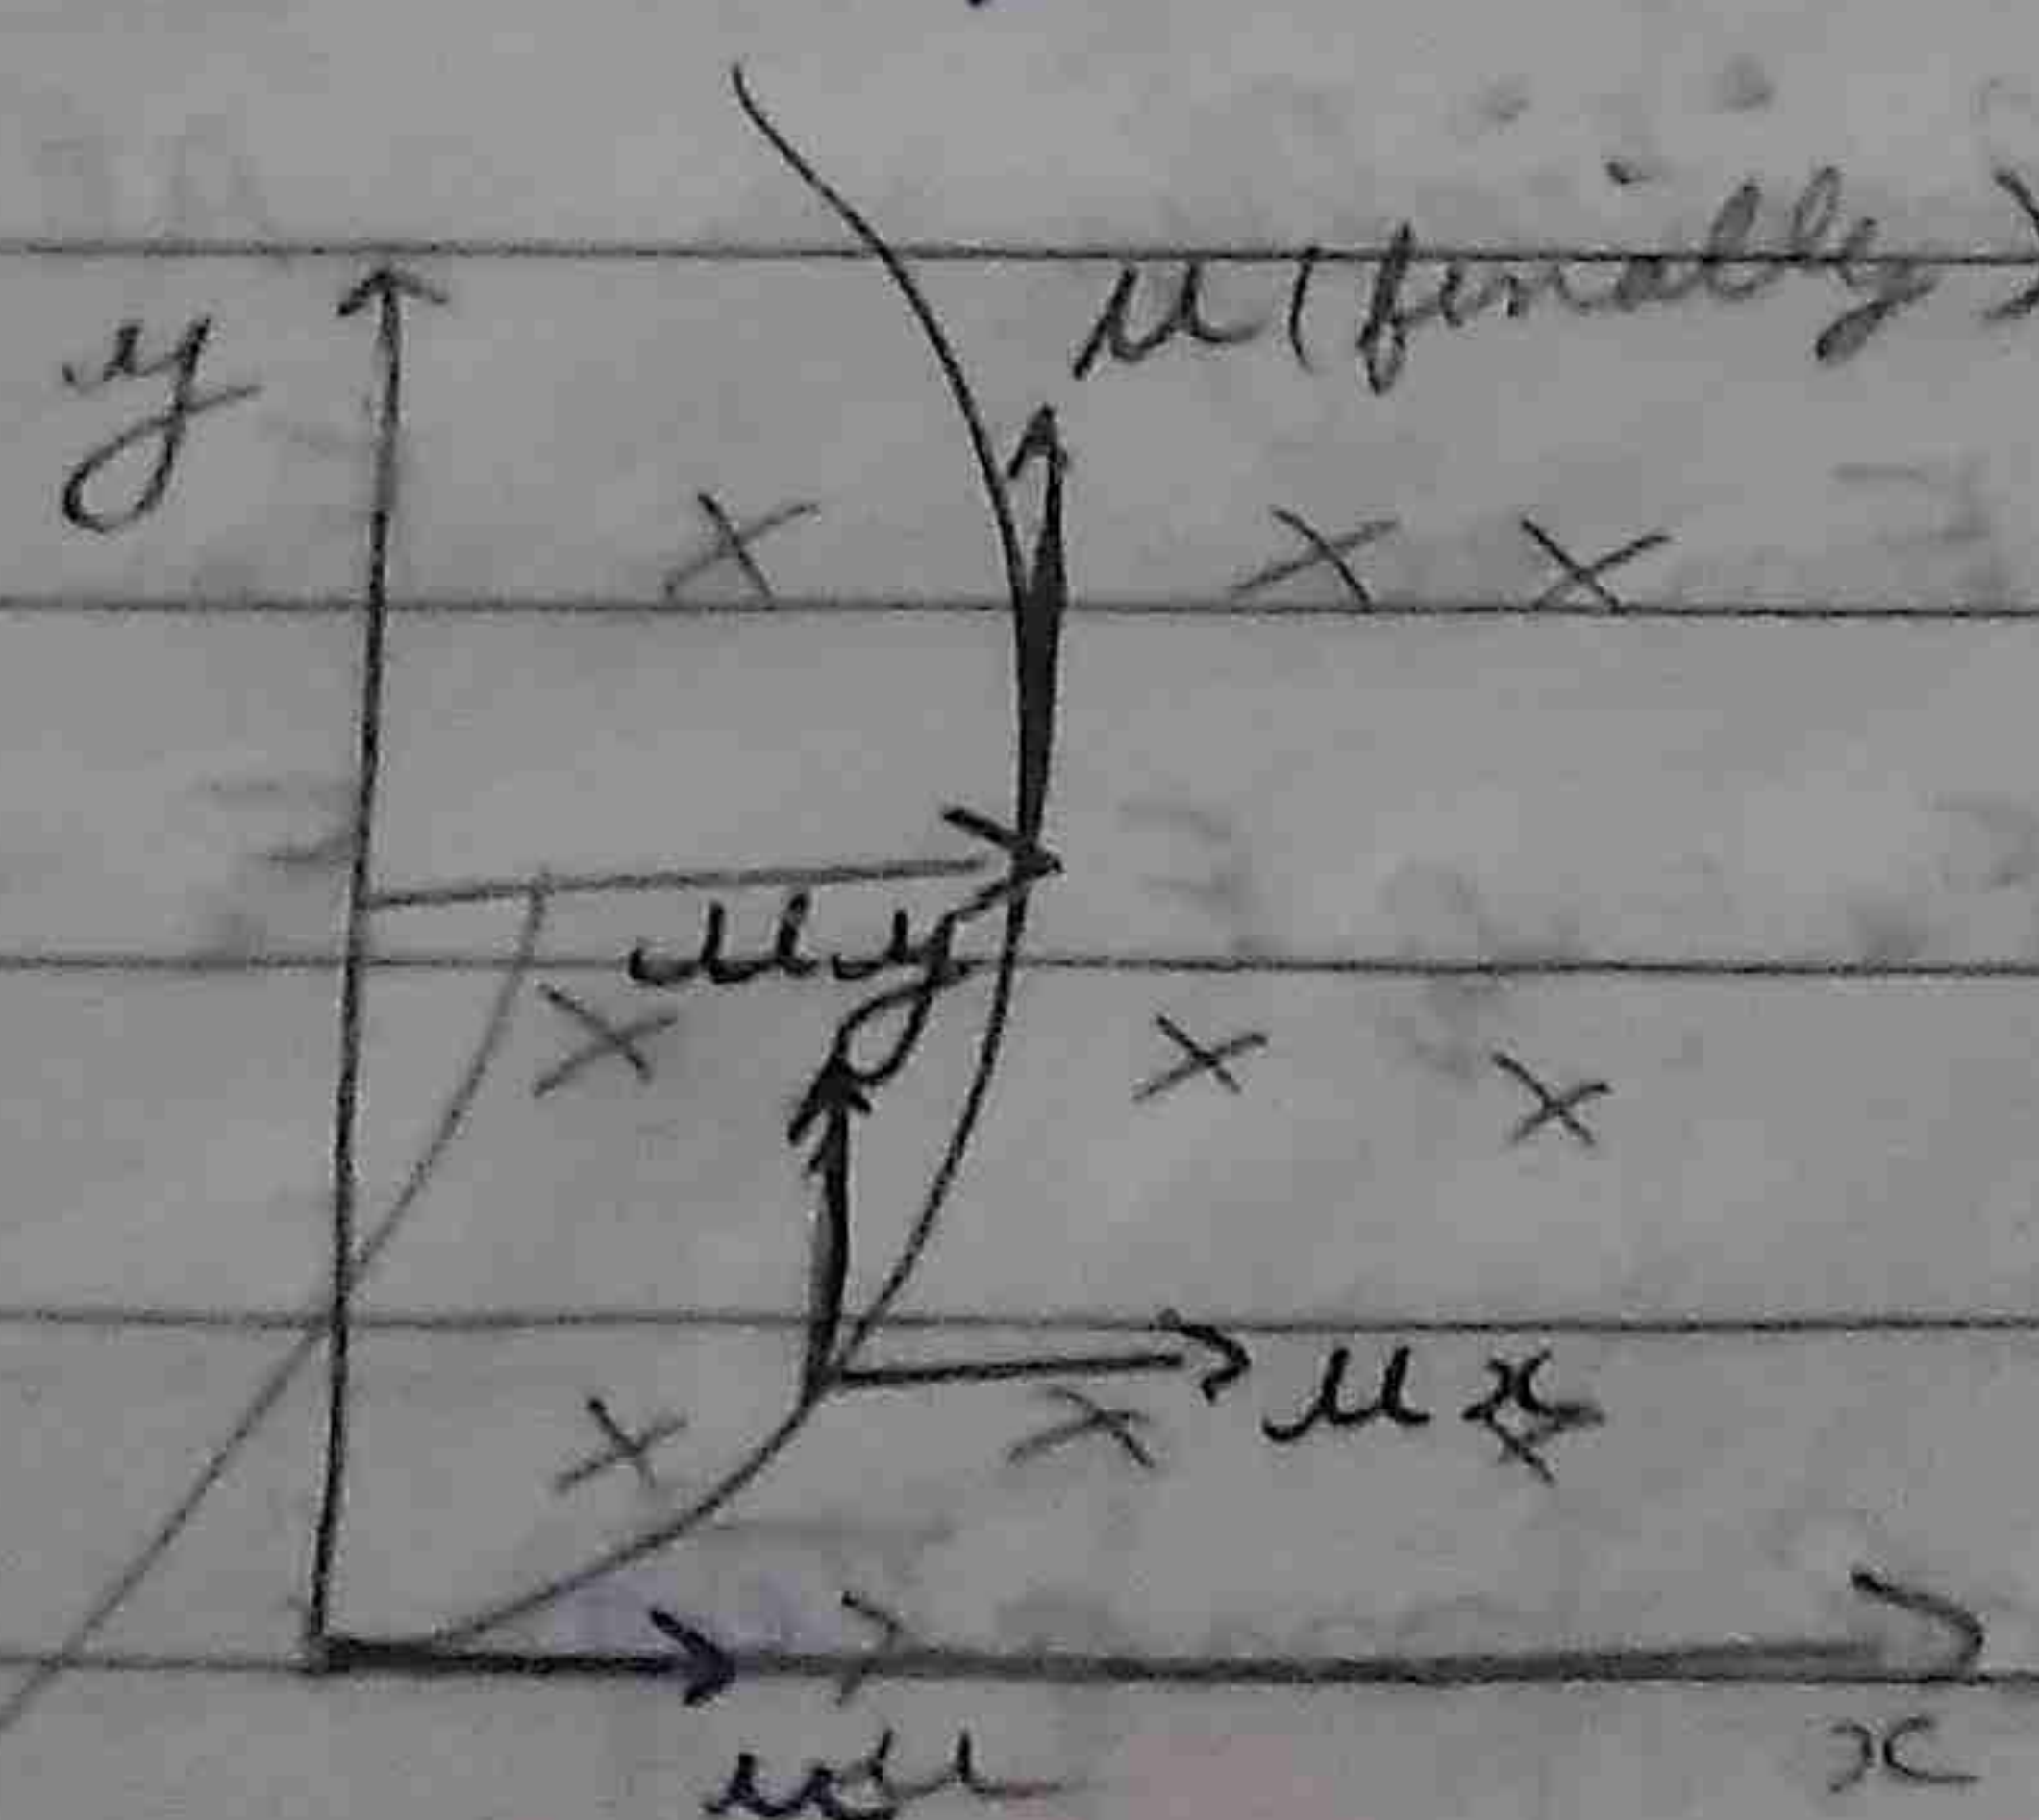 u (finally)
y
uy
ux
u
x